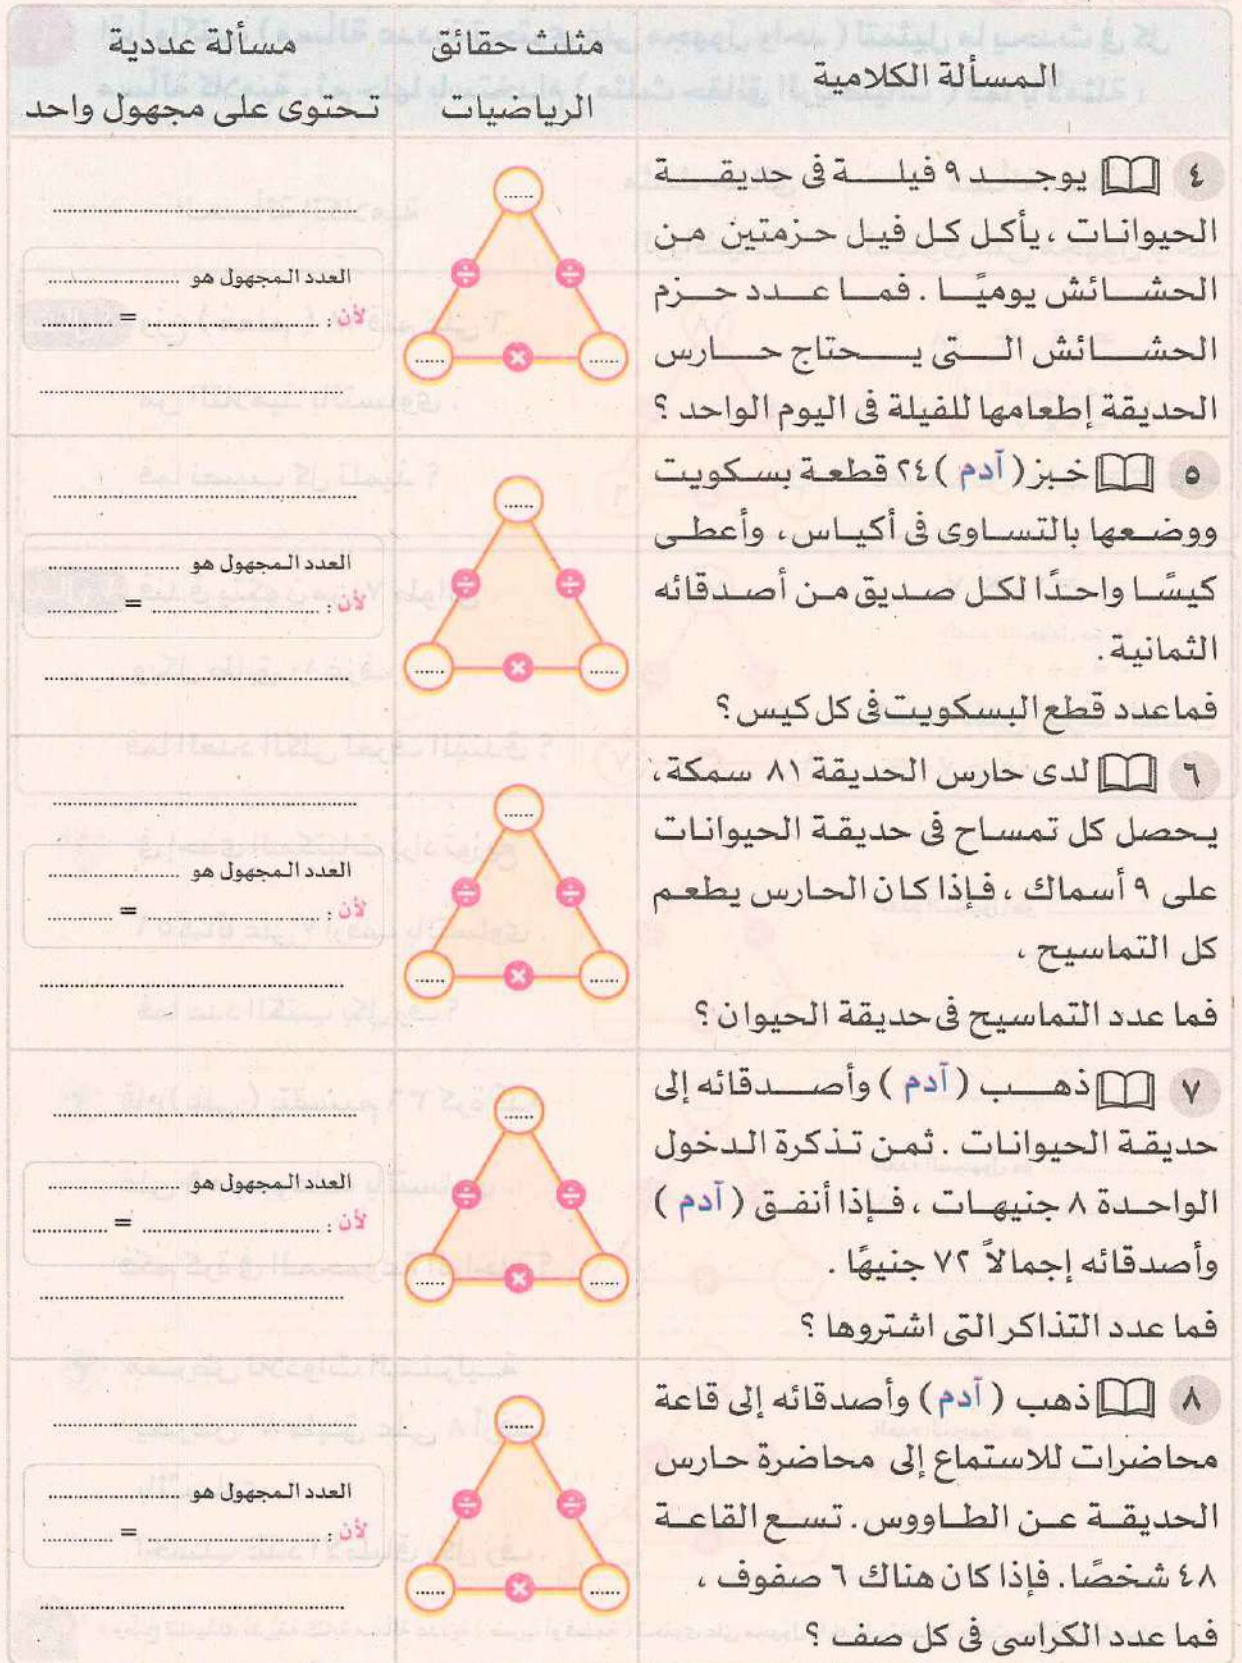 المسألة الكلامية
مثلث حقائق
الرياضيات
مسألة عددية
تحتوى على مجهول واحد
٤ يوجد ٩ فيلة فى حديقة
الحيوانات ، يأكل كل فيل حزمتين من
الحشائش يوميًا . فما عدد حزم
الحشائش التى يحتاج حارس
الحديقة إطعامها للفيلة فى اليوم الواحد ؟
......
÷ ÷
...... × ......
..............................
العدد المجهول هو ....................
لأن : .................... = ..........
..............................
٥ خبز ( آدم ) ٢٤ قطعة بسكويت
ووضعها بالتساوى فى أكياس ، وأعطى
كيسًا واحدًا لكل صديق من أصدقائه
الثمانية .
فما عدد قطع البسكويت فى كل كيس ؟
......
÷ ÷
...... × ......
..............................
العدد المجهول هو ....................
لأن : .................... = ..........
..............................
٦ لدى حارس الحديقة ٨١ سمكة ،
يحصل كل تمساح فى حديقة الحيوانات
على ٩ أسماك ، فإذا كان الحارس يطعم
كل التماسيح ،
فما عدد التماسيح فى حديقة الحيوان ؟
......
÷ ÷
...... × ......
..............................
العدد المجهول هو ....................
لأن : .................... = ..........
..............................
٧ ذهب ( آدم ) وأصدقائه إلى
حديقة الحيوانات . ثمن تذكرة الدخول
الواحدة ٨ جنيهات ، فإذا أنفق ( آدم )
وأصدقائه إجمالاً ٧٢ جنيهًا .
فما عدد التذاكر التى اشتروها ؟
......
÷ ÷
...... × ......
..............................
العدد المجهول هو ....................
لأن : .................... = ..........
..............................
٨ ذهب ( آدم ) وأصدقائه إلى قاعة
محاضرات للاستماع إلى محاضرة حارس
الحديقة عن الطاووس . تسع القاعة
٤٨ شخصًا . فإذا كان هناك ٦ صفوف ،
فما عدد الكراسى فى كل صف ؟
......
÷ ÷
...... × ......
..............................
العدد المجهول هو ....................
لأن : .................... = ..........
..............................